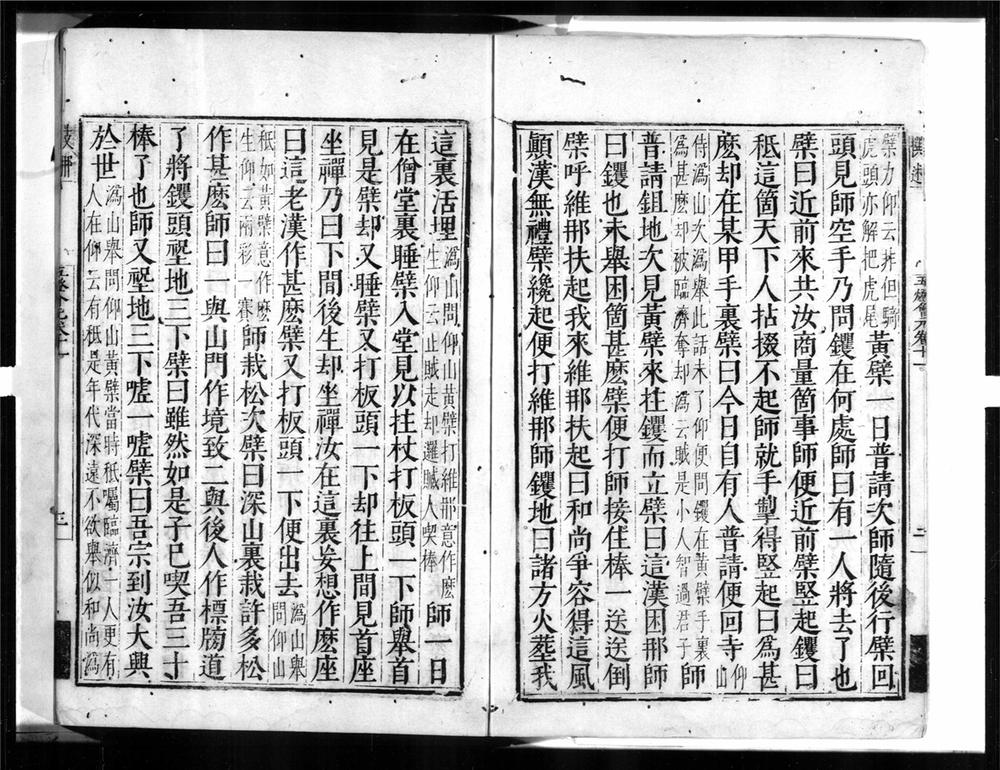 擘力仰云井但騎
虎頭亦解把虎尾黃檗一日普請次師隨後行檗回
頭見師空手乃問钁在何處師曰有一人將去了也
檗曰近前來共汝商量箇事師便近前檗竪起钁曰
秖這箇天下人拈掇不起師就手掣得竪起曰爲甚
麽却在某甲手裏檗曰今日自有人普請便回寺仰山
侍溈山次溈舉此話未了仰便問钁在黃檗手裏
爲甚麽却被臨濟奪却溈云賊是小人智過君子師
普請鉏地次見黃檗來拄钁而立檗曰這漢困那師
曰钁也未舉困箇甚麽檗便打師接住棒一送送倒
檗呼維那扶起我來維那扶起曰和尚爭容得這風
顚漢無禮檗纔起便打維那師钁地曰諸方火塟我
這裏活埋溈山問仰山黃檗打維那意作麽
生仰云正賊走却邏賊人喫棒師一日
在僧堂裏睡檗入堂見以拄杖打板頭一下師舉首
見是檗却又睡檗又打板頭一下却往上間見首座
坐禪乃曰下間後生却坐禪汝在這裏妄想作麽座
曰這老漢作甚麽檗又打板頭一下便出去溈山舉
問仰山
秖如黃檗意作麽
生仰云兩彩一賽師栽松次檗曰深山裏栽許多松
作甚麽師曰一與山門作境致二與後人作標牓道
了將钁頭㘿地三下檗曰雖然如是子已喫吾三十
棒了也師又㘿地三下噓一噓檗曰吾宗到汝大興
於世溈山舉問仰山黃檗當時秖囑臨濟一人更有
人在仰云有秖是年代深遠不欲舉似和尚溈
二
三